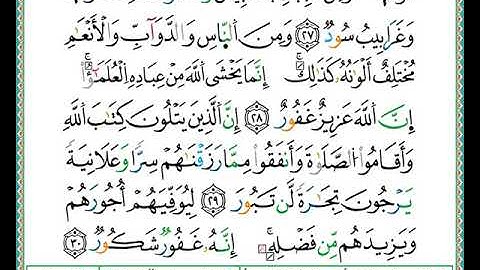 وَغَرَابِيبُ سُودٌ ٢٧ وَمِنَ ٱلنَّاسِ وَٱلدَّوَآبِّ وَٱلْأَنْعَٰمِ
مُخْتَلِفٌ أَلْوَٰنُهُۥ كَذَٰلِكَ ۗ إِنَّمَا يَخْشَى ٱللَّهَ مِنْ عِبَادِهِ ٱلْعُلَمَٰٓؤُا۟ ۗ
إِنَّ ٱللَّهَ عَزِيزٌ غَفُورٌ ٢٨ إِنَّ ٱلَّذِينَ يَتْلُونَ كِتَٰبَ ٱللَّهِ
وَأَقَامُوا۟ ٱلصَّلَوٰةَ وَأَنفَقُوا۟ مِمَّا رَزَقْنَٰهُمْ سِرًّا وَعَلَانِيَةً
يَرْجُونَ تِجَٰرَةً لَّن تَبُورَ ٢٩ لِيُوَفِّيَهُمْ أُجُورَهُمْ
وَيَزِيدَهُم مِّن فَضْلِهِۦٓ ۚ إِنَّهُۥ غَفُورٌ شَكُورٌ ٣٠